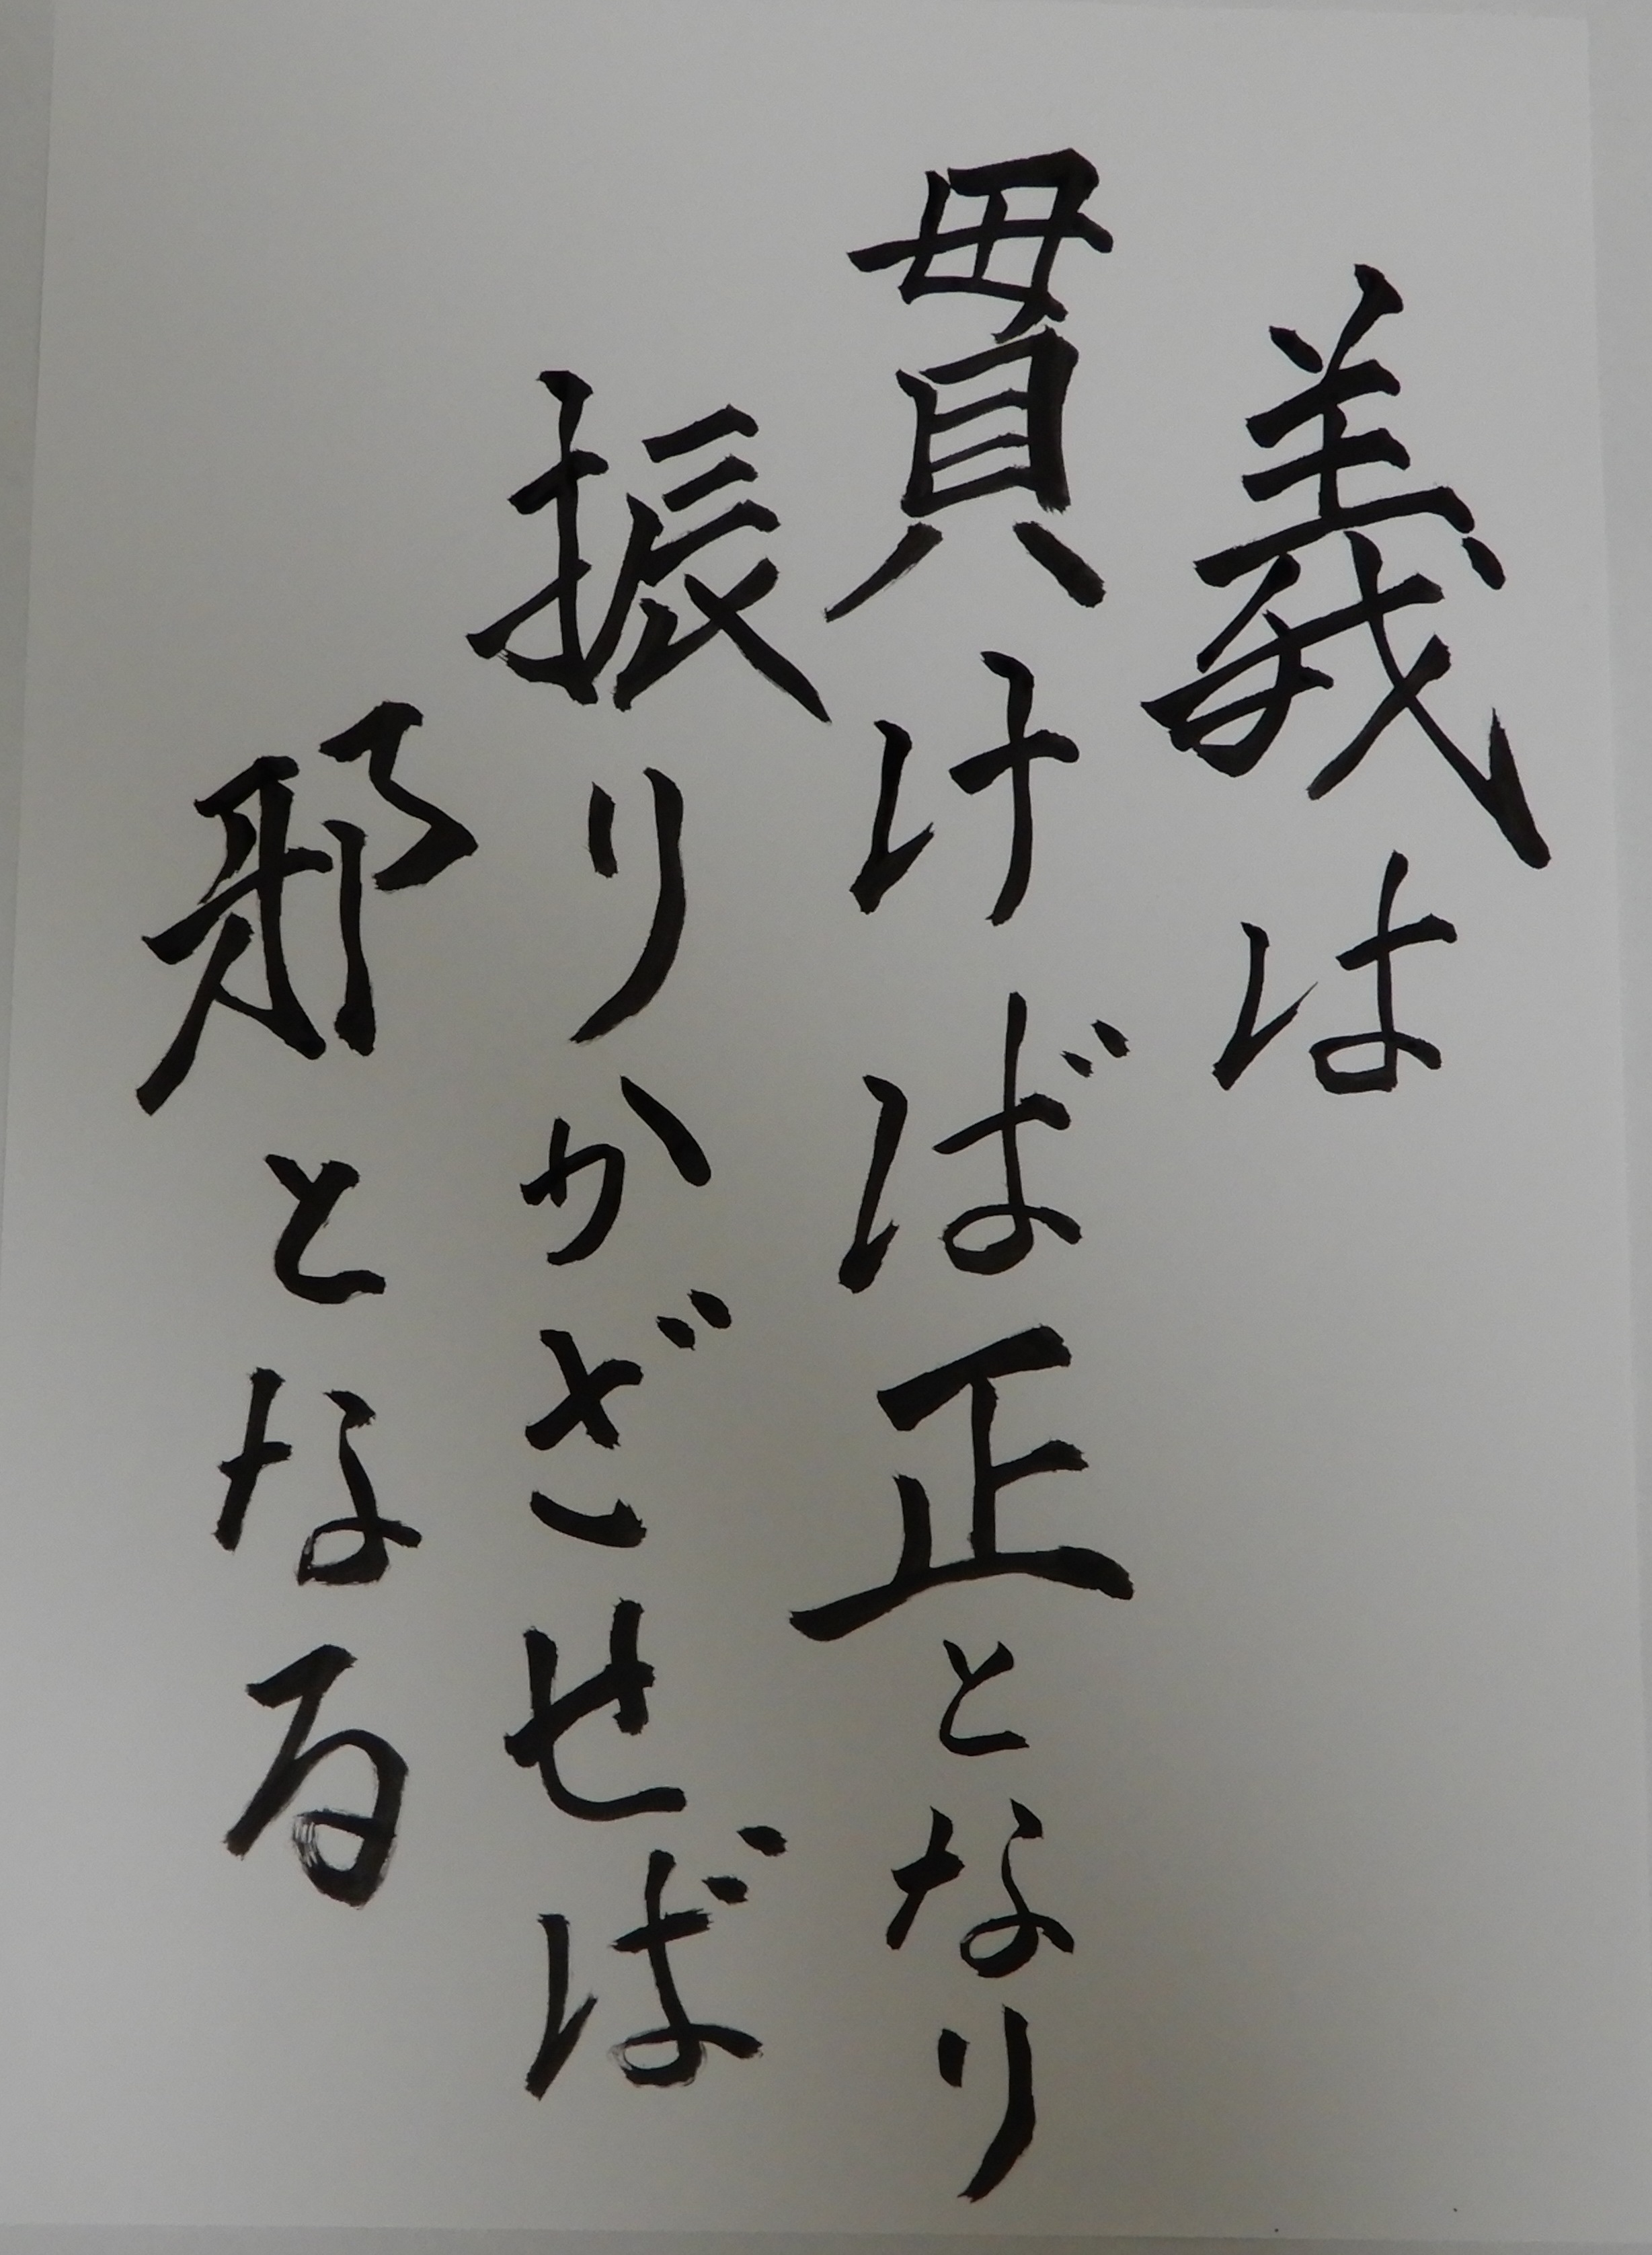 義は
貫けば正となり
振りかざせば
邪となる